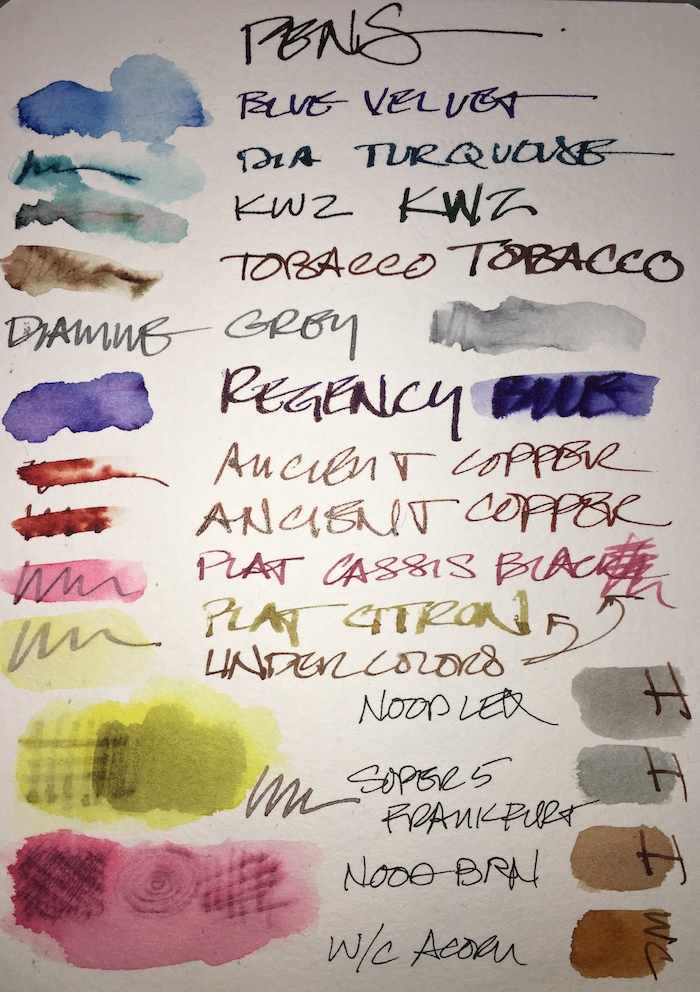 PENS
BLUE VELVET
DIA TURQUOISE
KWZ KWZ
TOBACCO TOBACCO
DIAMINE GREY
REGENCY BLUE
ANCIENT COPPER
ANCIENT COPPER
PLAT CASSIS BLACK
PLAT CITRON
UNDERCOLORS
NOODLER I
SUPER 5 I
FRANKFURT
NOOD BRN I
W/C ACORN W/C